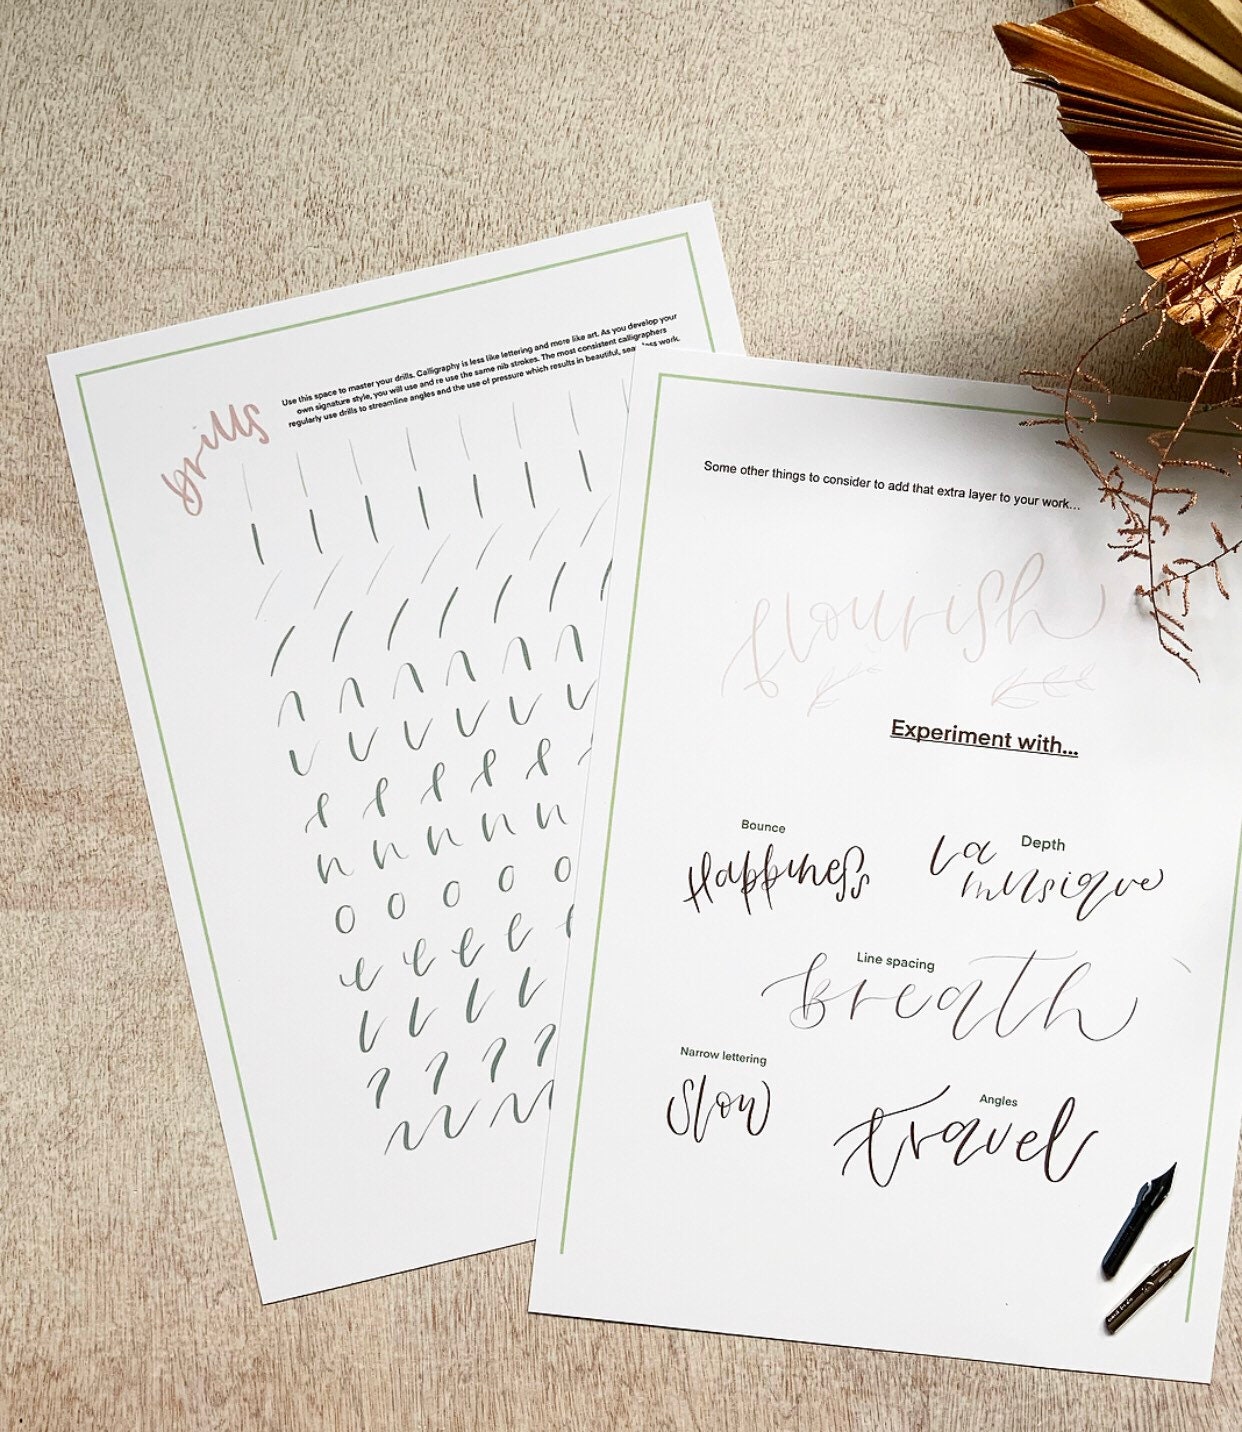 drills
Use this space to master your drills. Calligraphy is less like lettering and more like art. As you develop your
own signature style, you will use and re use the same nib strokes. The most consistent calligraphers
regularly use drills to streamline angles and the use of pressure which results in beautiful, work.
Some other things to consider to add that extra layer to your work...
flourish
Experiment with...
Bounce
Happiness
Depth
La
musique
Line spacing
Breath
Narrow lettering
Slow
Angles
travel